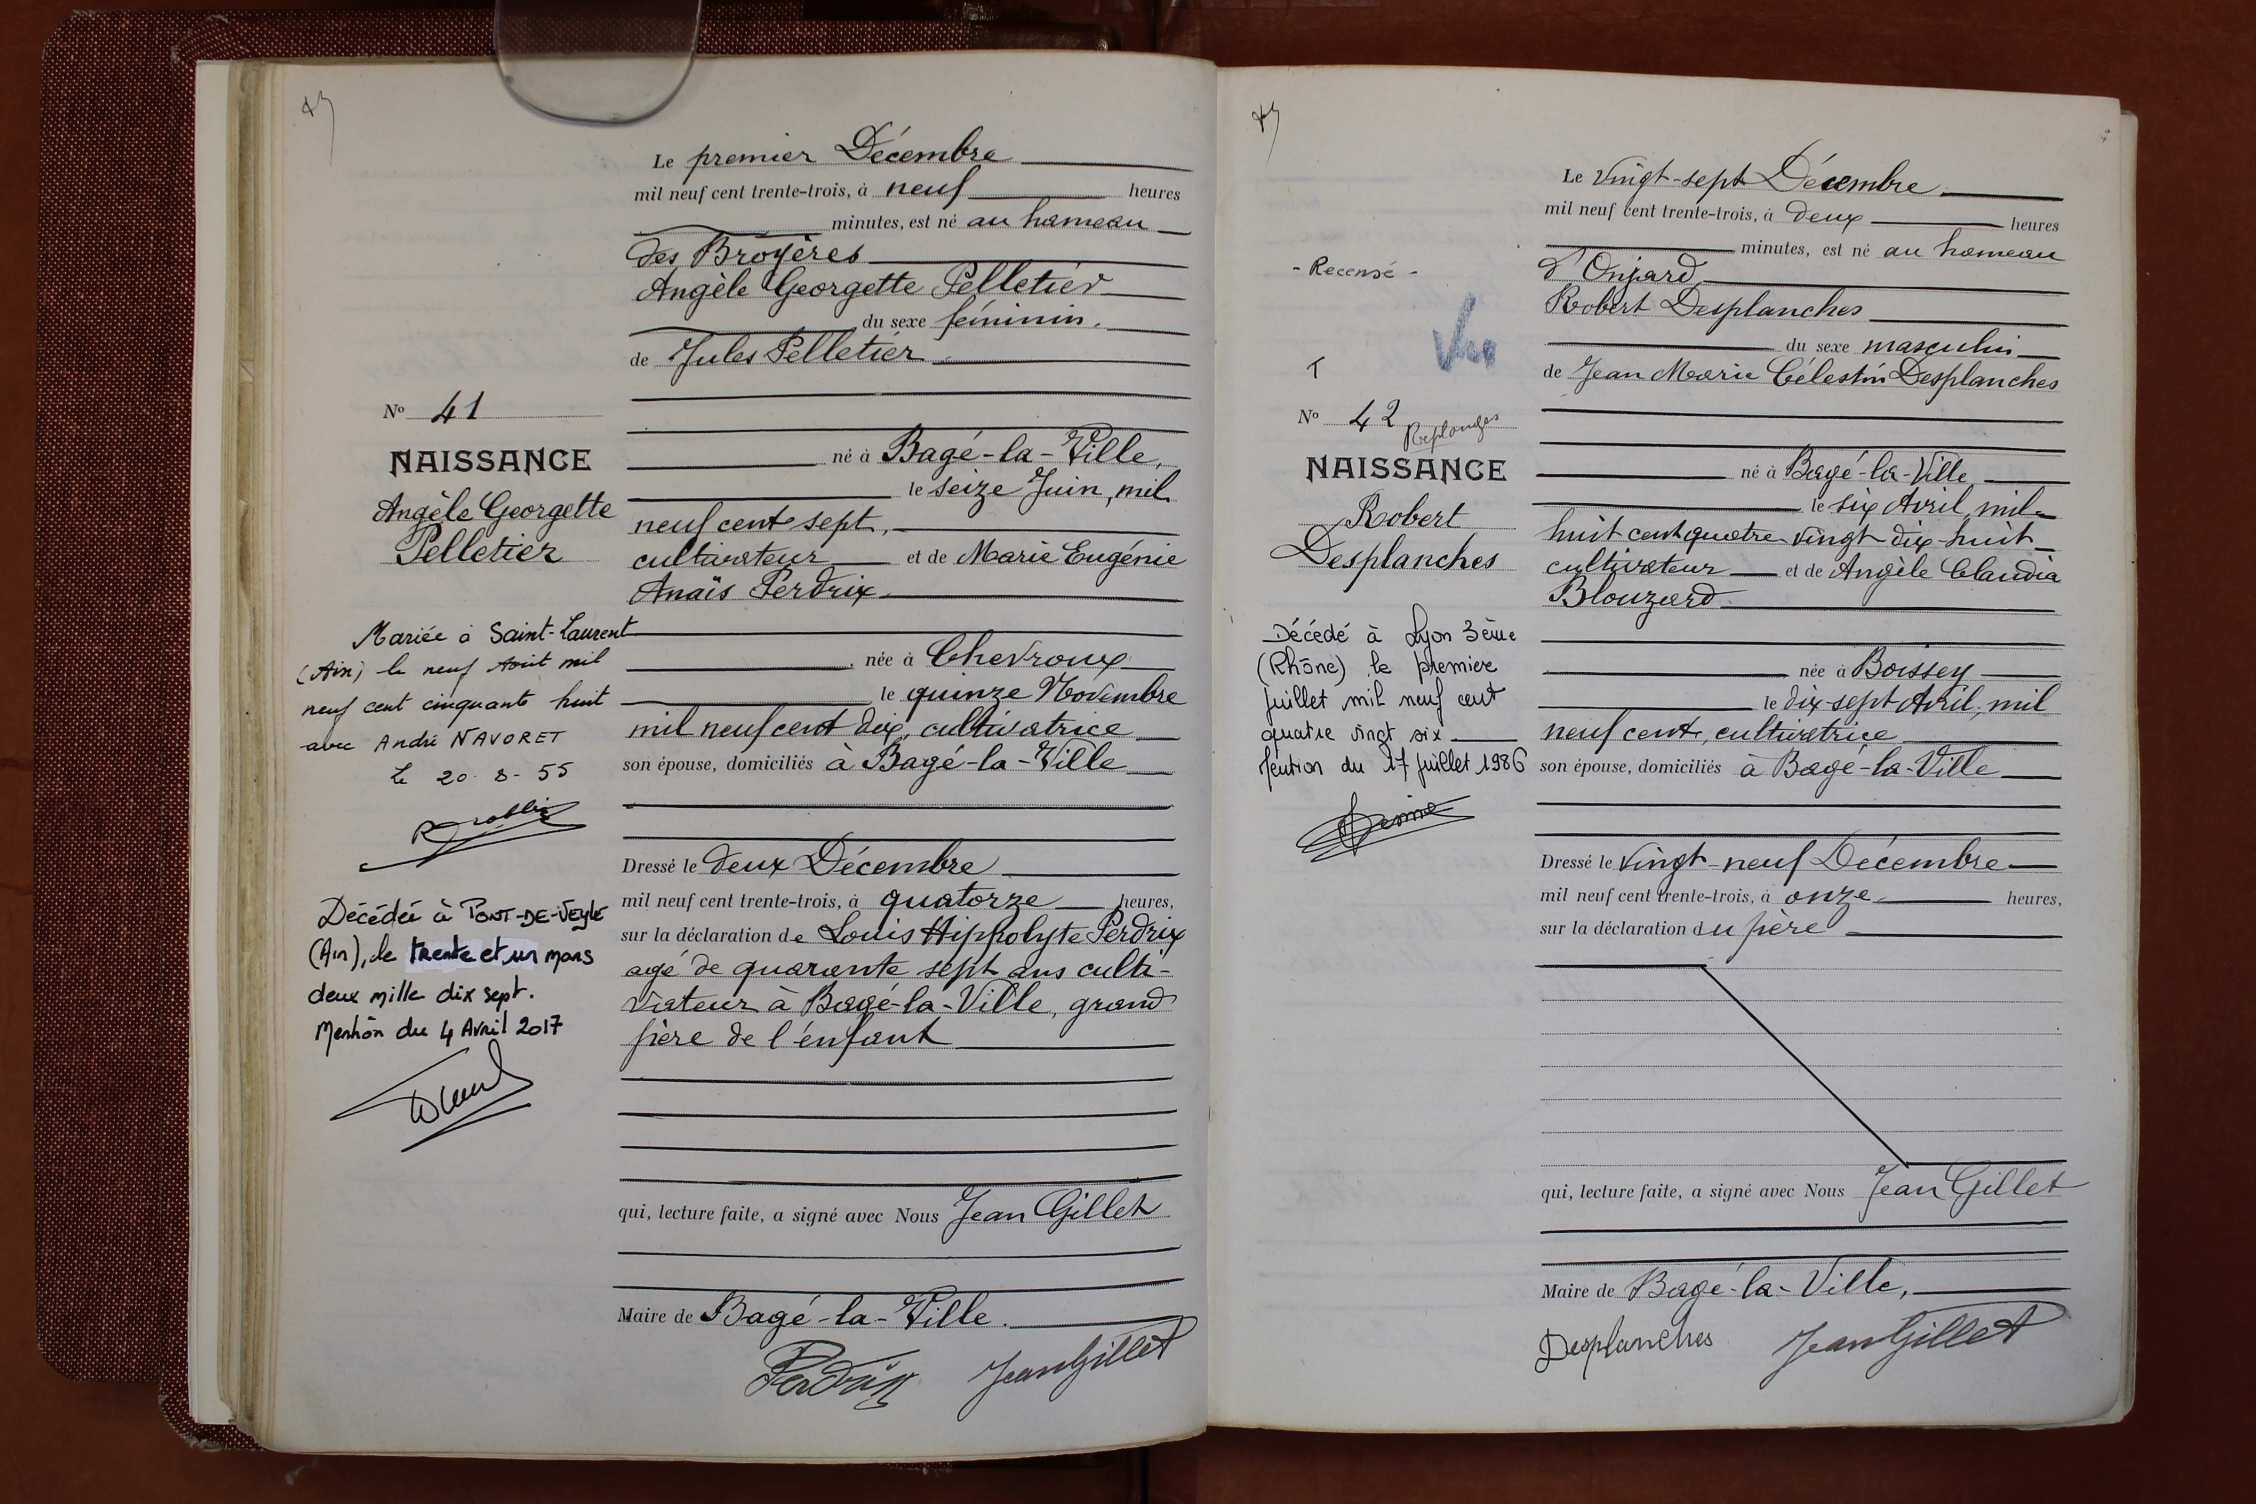 Le premier Décembre
mil neuf cent trente-trois, à neuf heures
minutes, est né au hameau
des Broyères
Angèle Georgette Pelletier
du sexe féminin.
de Jules Pelletier
No 41
NAISSANCE
Angèle Georgette
Pelletier
né à Bagé-la-Ville,
le seize Juin, mil
neuf cent sept,
cultivateur et de Marie Eugénie
Anaïs Perdrix
née à Chevroux
le quinze Novembre
mil neuf cent dix, cultivatrice
son épouse, domiciliés à Bagé-la-Ville
Mariée à Saint-Laurent
(Ain) le neuf Août mil
neuf cent cinquante huit
avec André NAVORET
Le 20-8-55
Décédée à PONT-DE-VEYLE
(Ain), le trente et un mars
deux mille dix sept.
Mention du 4 Avril 2017
Dressé le deux Décembre
mil neuf cent trente-trois, à quatorze heures,
sur la déclaration de Louis Hippolyte Perdrix
agé de quarante sept ans culti-
vateur à Bagé-la-Ville, grand
père de l'enfant
qui, lecture faite, a signé avec Nous Jean Gillet
Maire de Bagé-la-Ville.
Perdrix Jean Gillet
Le vingt-sept Décembre
mil neuf cent trente-trois, à deux heures
minutes, est né au hameau
d'Onjard
Robert Desplanches
du sexe masculin
de Jean Marie Célestin Desplanches
- Recensé -
Vu
T
No 42
Replonges
NAISSANCE
Robert
Desplanches
né à Bagé-la-Ville
le six Avril, mil
huit cent quatre vingt dix-huit
cultivateur et de Angèle Claudia
Blouzard
née à Boissey
le dix-sept Avril, mil
neuf cent, cultivatrice
son épouse, domiciliés à Bagé-la-Ville
Décédé à Lyon 3ème
(Rhône) le premier
juillet mil neuf cent
quatre vingt six
Mention du 17 juillet 1986
Dressé le vingt-neuf Décembre
mil neuf cent trente-trois, à onze heures,
sur la déclaration du père
qui, lecture faite, a signé avec Nous Jean Gillet
Maire de Bagé-la-Ville,
Desplanches Jean Gillet